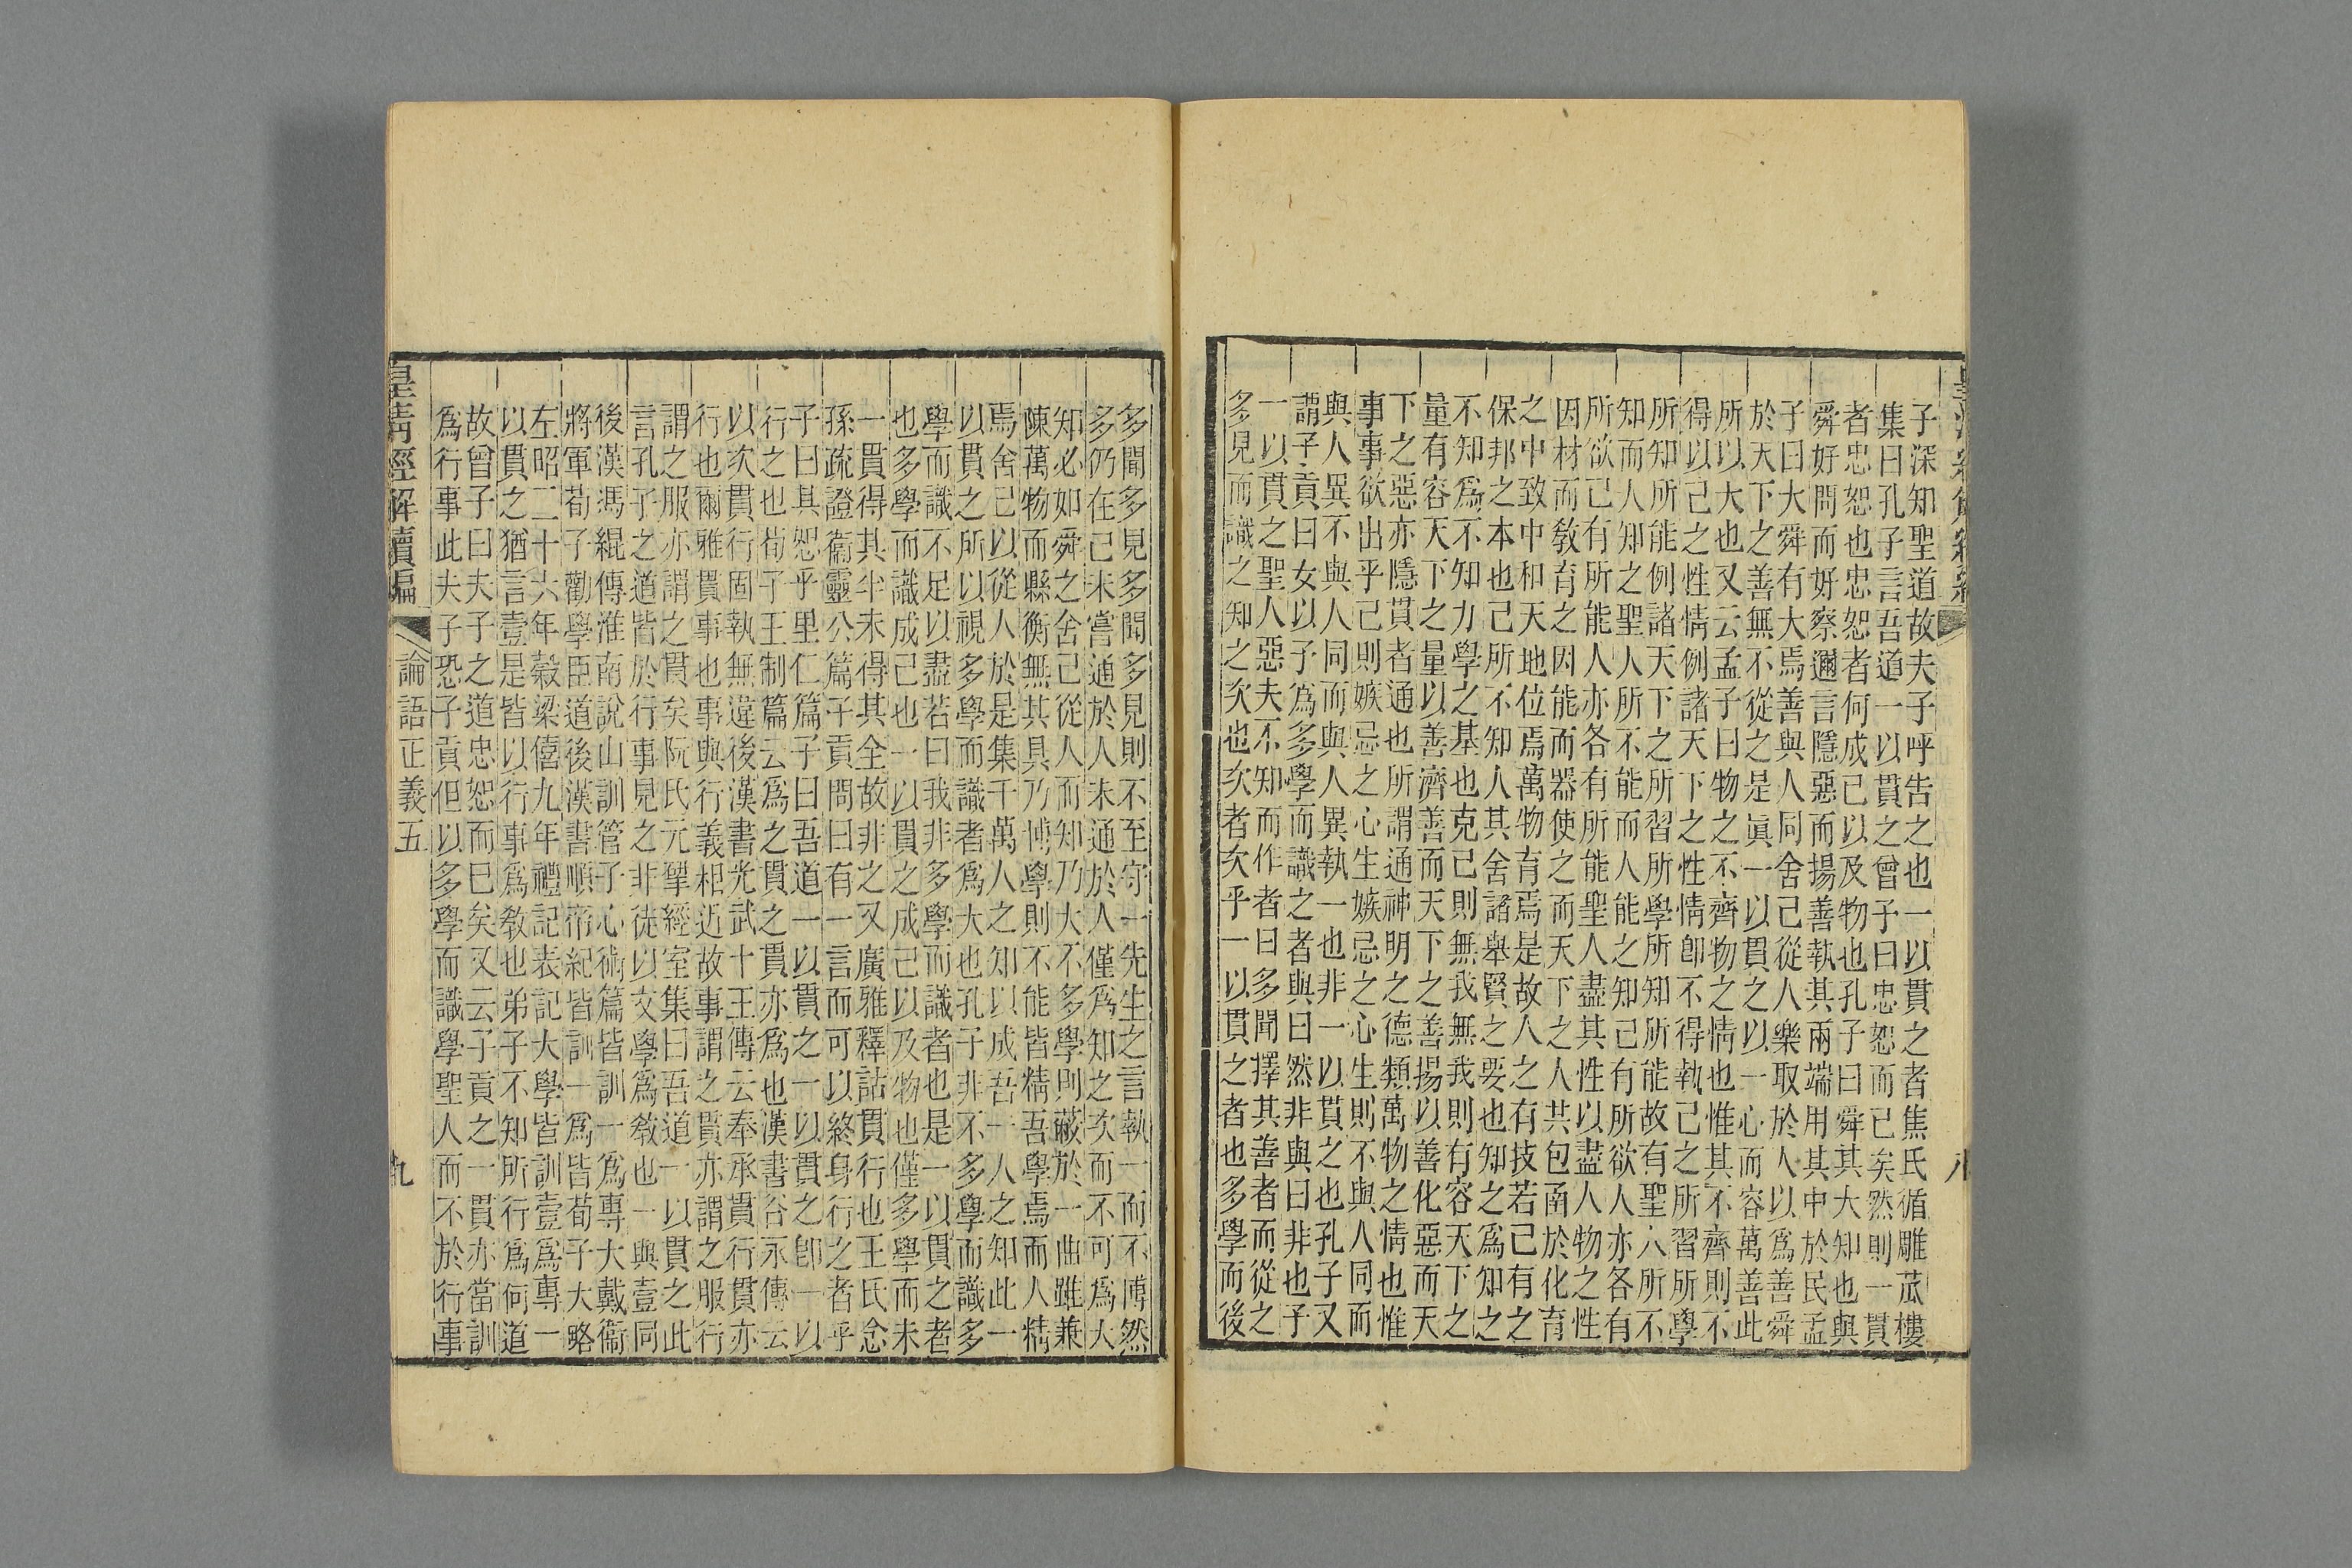 子深知聖道故夫子呼告之也一以貫之者焦氏循雕菰樓
集曰孔子言吾道一以貫之曾子曰忠恕而已矣然則一貫
者忠恕也忠恕者何成己以及物也孔子曰舜其大知也與
舜好問而好察邇言隱惡而揚善執其兩端用其中於民孟
子曰大舜有大焉善與人同舍己從人樂取於人以爲善舜
於天下之善無不從之是眞一以貫之以一心而容萬善此
所以大也又云孟子曰物之不齊物之情也惟其不齊則不
得以己之性情例諸天下之性情卽不得執己之所習所學
所知所能例諸天下之所習所學所知所能故有聖人所不
知而人知之聖人所不能而人能之知己有所欲人亦各有
所欲己有所能人亦各有所能聖人盡其性以盡人物之性
因材而敎育之因能而器使之而天下之人共包函於化育
之中致中和天地位焉萬物育焉是故人之有技若己有之
保邦之本也己所不知人其舍諸舉賢之要也知之爲知之
不知爲不知力學之基也克己則無我無我則有容天下之
量有容天下之量以善濟善而天下之善揚以善化惡而天
下之惡亦隱貫者通也所謂通神明之德類萬物之情也惟
事事欲出乎己則嫉忌之心生嫉忌之心生則不與人同而
與人異不與人同而與人異執一也非一以貫之也孔子又
謂子貢曰女以子爲多學而識之者與曰然非與曰非也子
一以貫之聖人惡夫不知而作者曰多聞擇其善者而從之
多見而識之知之次也次者次乎一以貫之者也多學而後
多聞多見多聞多見則不至守一先生之言執一而不博然
多仍在己未嘗通於人未通於人僅爲知之次而不可爲大
知必如舜之舍己從人而知乃大不多學則蔽於一曲雖兼
陳萬物而縣衡無其具乃博學則不能皆精吾學焉而人精
焉舍己以從人於是集千萬人之知以成吾一人之知此一
以貫之所以視多學而識者爲大也孔子非不多學而識多
學而識不足以盡若曰我非多學而識者也是一以貫之者
也多學而識成己也一以貫之成己以及物也僅多學而未
一貫得其半未得其全故非之又廣雅釋詁貫行也王氏念
孫疏證衞靈公篇子貢問曰有一言而可以終身行之者乎
子曰其恕乎里仁篇子曰吾道一以貫之一以貫之卽一以
行之也荀子王制篇云爲之貫之貫亦爲也漢書谷永傳云
以次貫行固執無違後漢書光武十王傳云奉承貫行貫亦
行也爾雅貫事也事與行義相近故事謂之貫亦謂之服行
謂之服亦謂之貫矣阮氏元揅經室集曰吾道一以貫之此
言孔子之道皆於行事見之非徒以文學爲敎也一與壹同
後漢馮緄傳淮南說山訓管子心術篇皆訓一爲專大戴衞
將軍荀子勸學臣道後漢書順帝紀皆訓一爲皆荀子大略
左昭二十六年穀梁僖九年禮記表記大學皆訓壹爲專一
以貫之猶言壹是皆以行事爲敎也弟子不知所行爲何道
故曾子曰夫子之道忠恕而巳矣又云子貢之一貫亦當訓
爲行事此夫子恐子貢但以多學而識學聖人而不於行事
皇淸經解續編　論語正義五　九
八